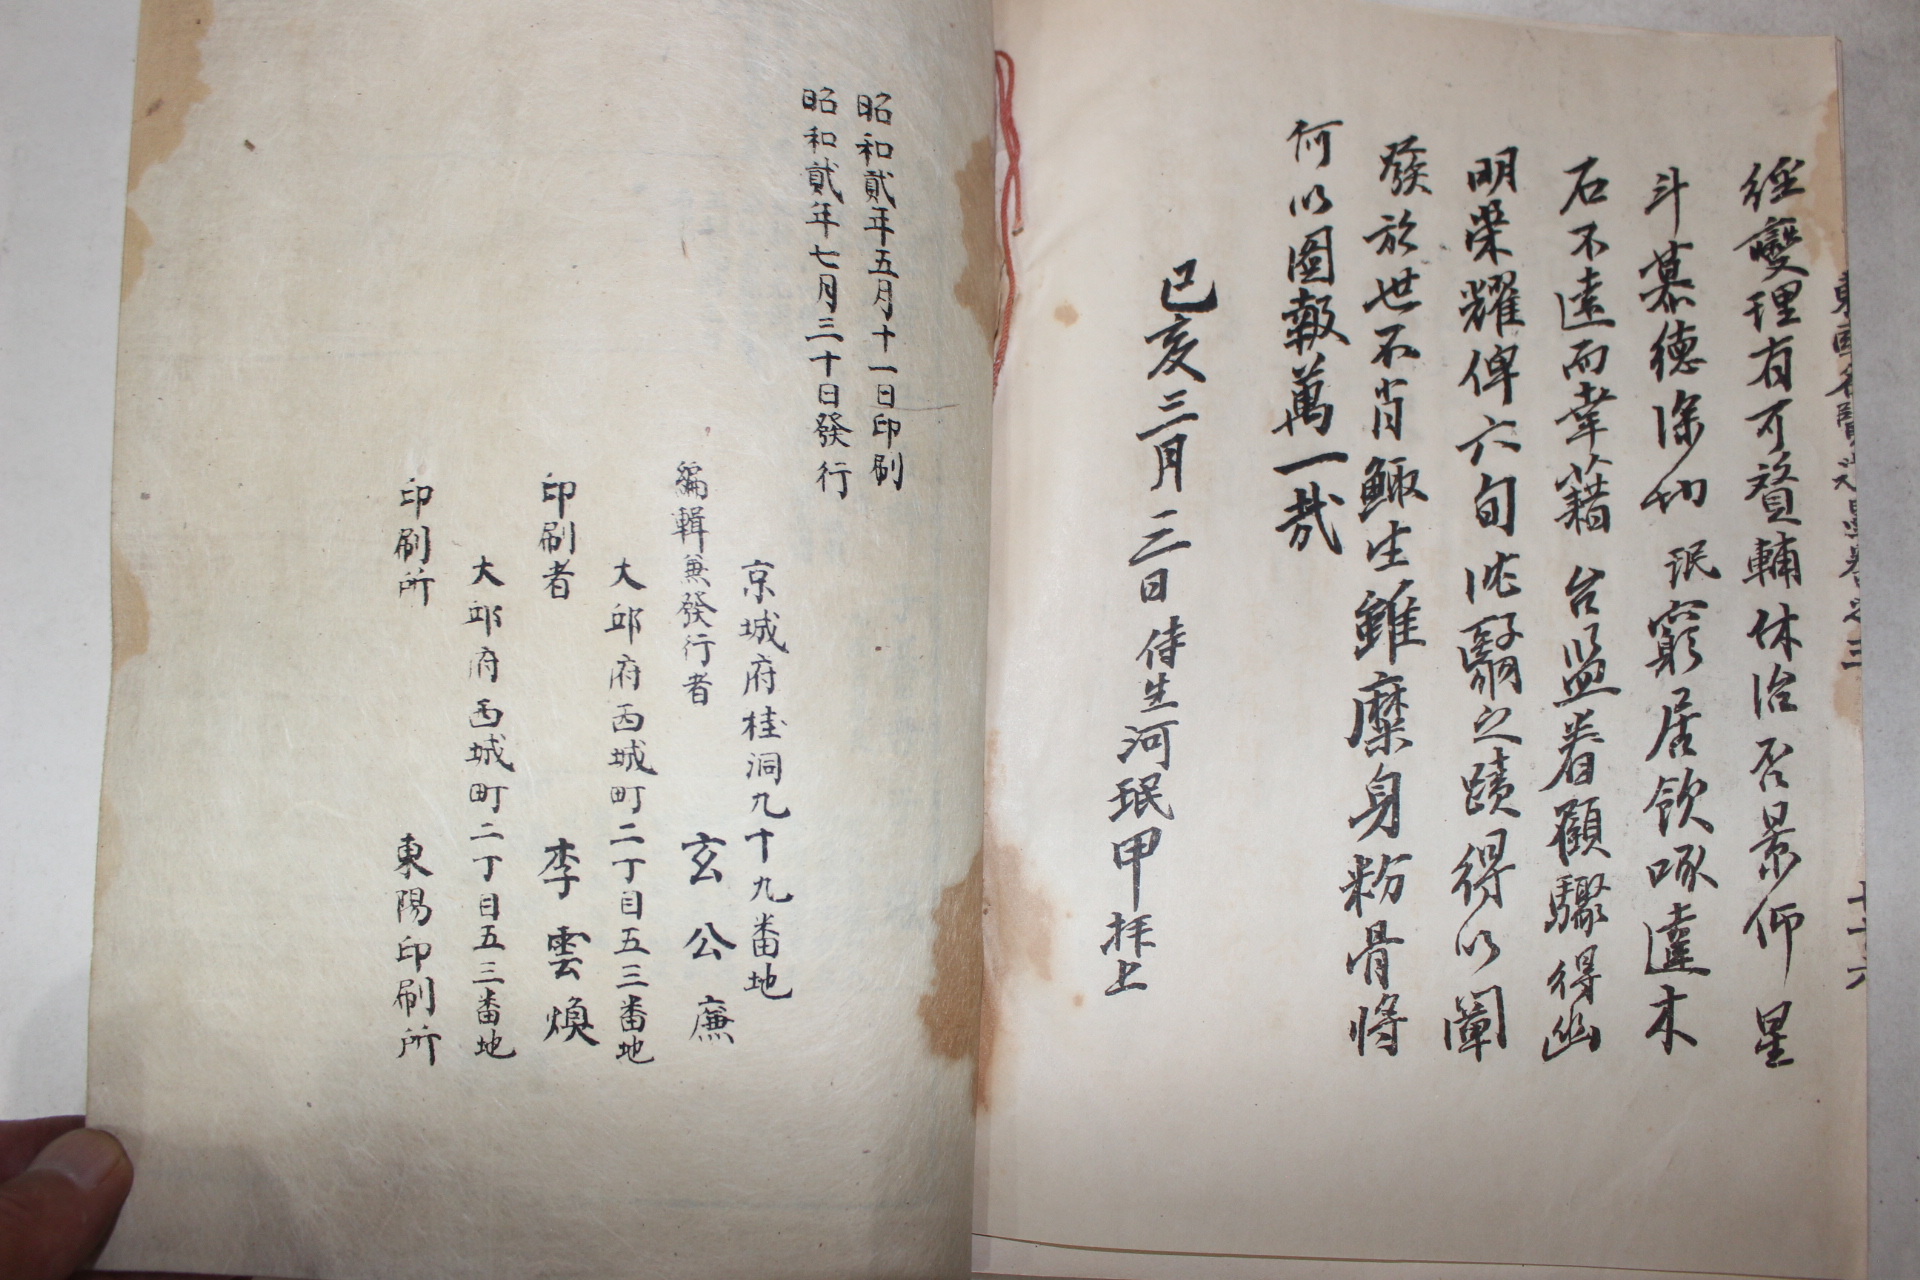 經變理有可贅輔休治否景仰星
斗慕德深切 珉窮居飮啄違木
石不遠而幸藉 台監眷顧驟得幽
明榮耀俾六旬沈翳之蹟得以闡
發於世不肖鲰生雖糜身粉骨將
何以圖報萬一哉
己亥三月三日侍生河珉甲拜上
昭和貳年五月十一日印刷
昭和貳年七月三十日發行
京城府桂洞九十九番地
編輯兼發行者 玄公廉
大邱府西城町二丁目五三番地
印刷者 李雲煥
大邱府西城町二丁目五三番地
印刷所 東陽印刷所